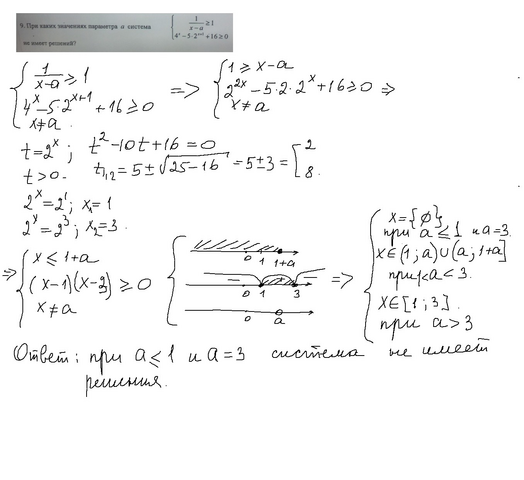 9. При каких значениях параметра a система { 1/(x-a) ≥ 1
4^x - 5·2^(x+1) + 16 ≥ 0
не имеет решений?
{ 1/(x-a) ≥ 1 => { 1 ≥ x-a
4^x - 5·2^(x+1) + 16 ≥ 0 2^(2x) - 5·2·2^x + 16 ≥ 0 =>
x ≠ a x ≠ a
t = 2^x ; t^2 - 10t + 16 = 0
t > 0. t1,2 = 5 ± √(25-16) = 5 ± 3 = [ 2
8.
2^x = 2^1 ; x1 = 1
2^x = 2^3 ; x2 = 3.
=> { x ≤ 1+a
(x-1)(x-3) ≥ 0
x ≠ a
0 1 1+a
- - 0 1 3
0 a
=> { x = {∅}
при a ≤ 1 и a = 3.
x ∈ (1; a) ∪ (a; 1+a]
при 1 < a < 3.
x ∈ [1; 3].
при a > 3
Ответ: при a ≤ 1 и a = 3 система не имеет
решения.